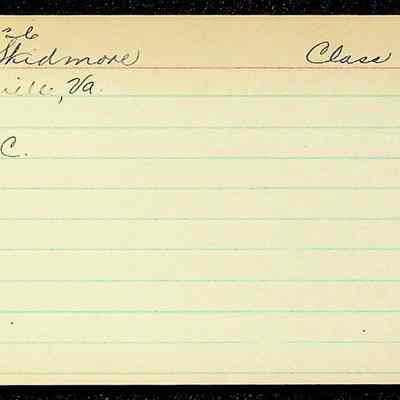 26
Skidmore Class
ille, Va.
C.